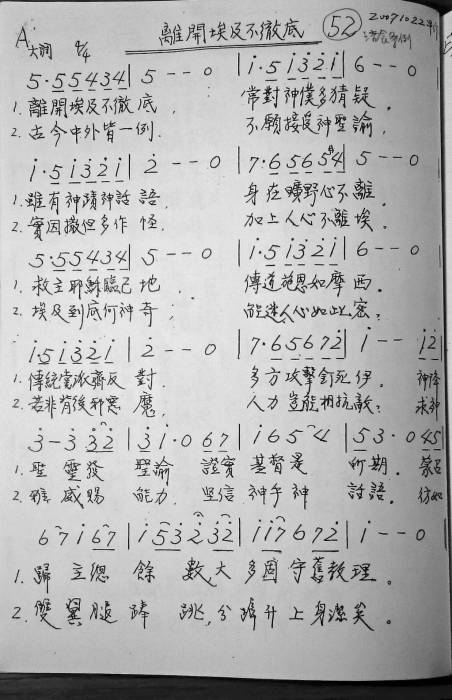 離開埃及不徹底 52 20071022
A 大調 4/4
5·55434 | 5 - - 0 | i·5i32i | 6 - - 0
1. 離開埃及不徹底, 常對神僕多猜疑.
2. 古今中外皆一例. 不願接受神聖諭,
i·5i32i | 2 - - 0 | 7·65654 | 5 - - 0
1. 雖有神蹟神話語 身在曠野心不離.
2. 實因撒但多作怪. 加上人心不離埃.
5·55434 | 5 - - 0 | i·5i32i | 6 - - 0
1. 救主耶穌臨己地. 傳道施恩如摩西.
2. 埃及到底何神奇, 能迷人心如此密;
i·5i32i | 2 - - 0 | 7·65672 | i - - i2
1. 傳統黨派齊反對. 多方攻擊釘死伊. 神降
2. 若非背後邪惡魔, 人力豈能相抗敵; 求神
3 - 3 32 | 3i·0 67 | i65 4 | 53·0 45
1. 聖靈發聖諭 證實基督是所期. 蒙召
2. 權威賜能力. 堅信神乎神話語. 彷如
67i67 | i53232 | ii7672 | i - - 0
1. 歸主總餘數大多固守舊教理。
2. 雙翼腿踭跳, 分蹄升上身潔矣。